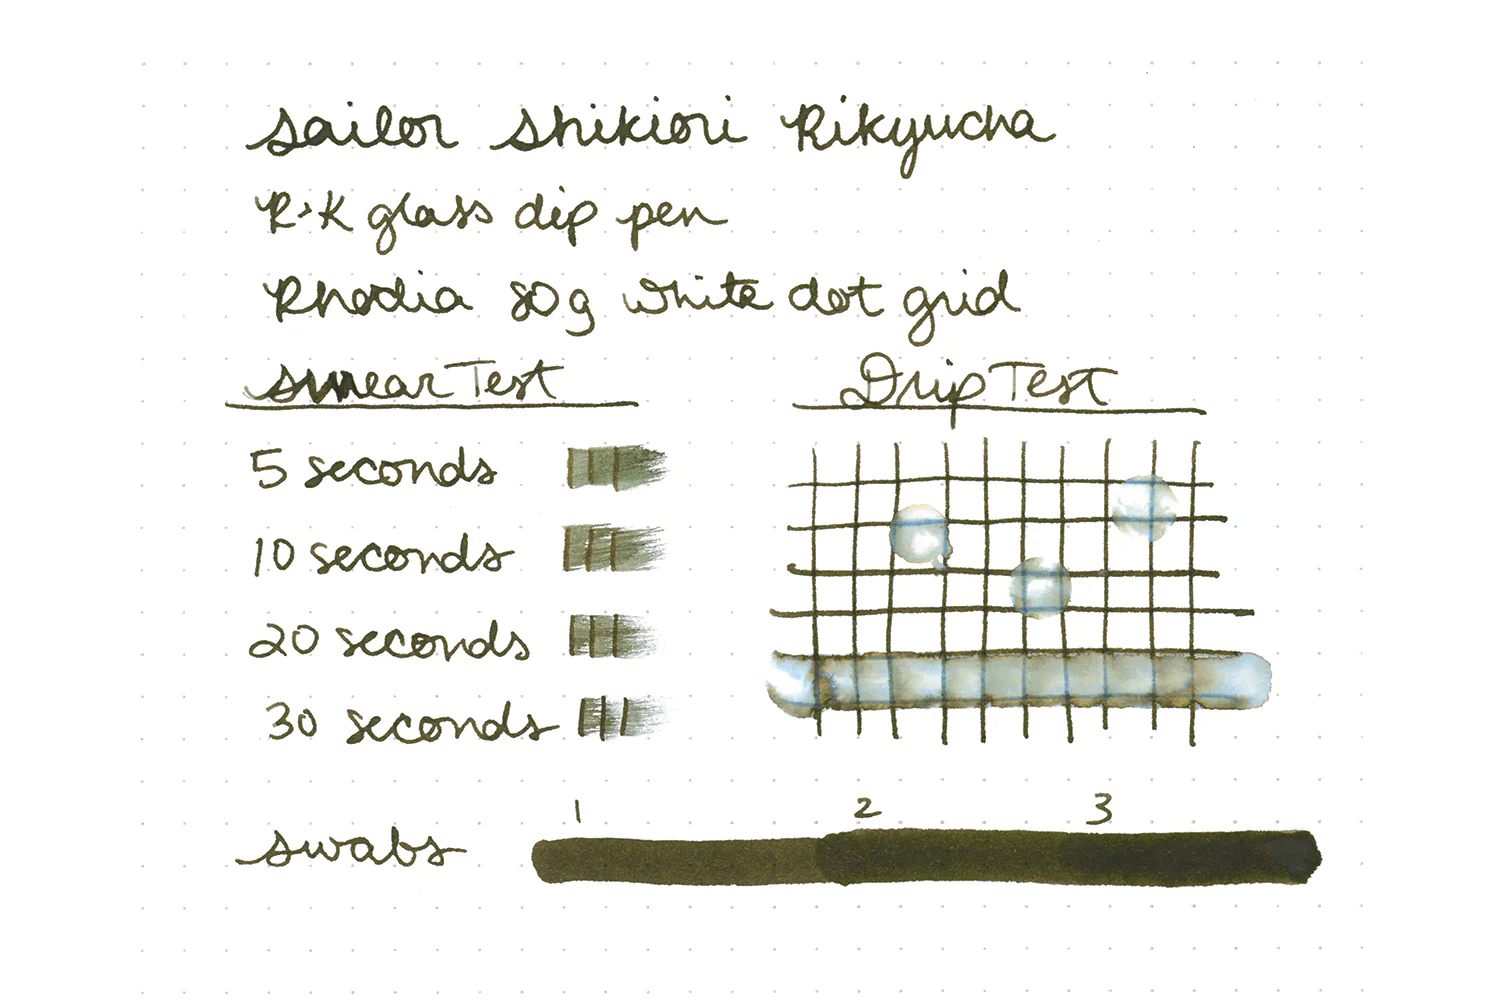 Sailor Shikiori Rikyucha
R+K glass dip pen
Rhodia 80g white dot grid
Smear Test
5 seconds
10 seconds
20 seconds
30 seconds
Drip Test
swabs
1 2 3